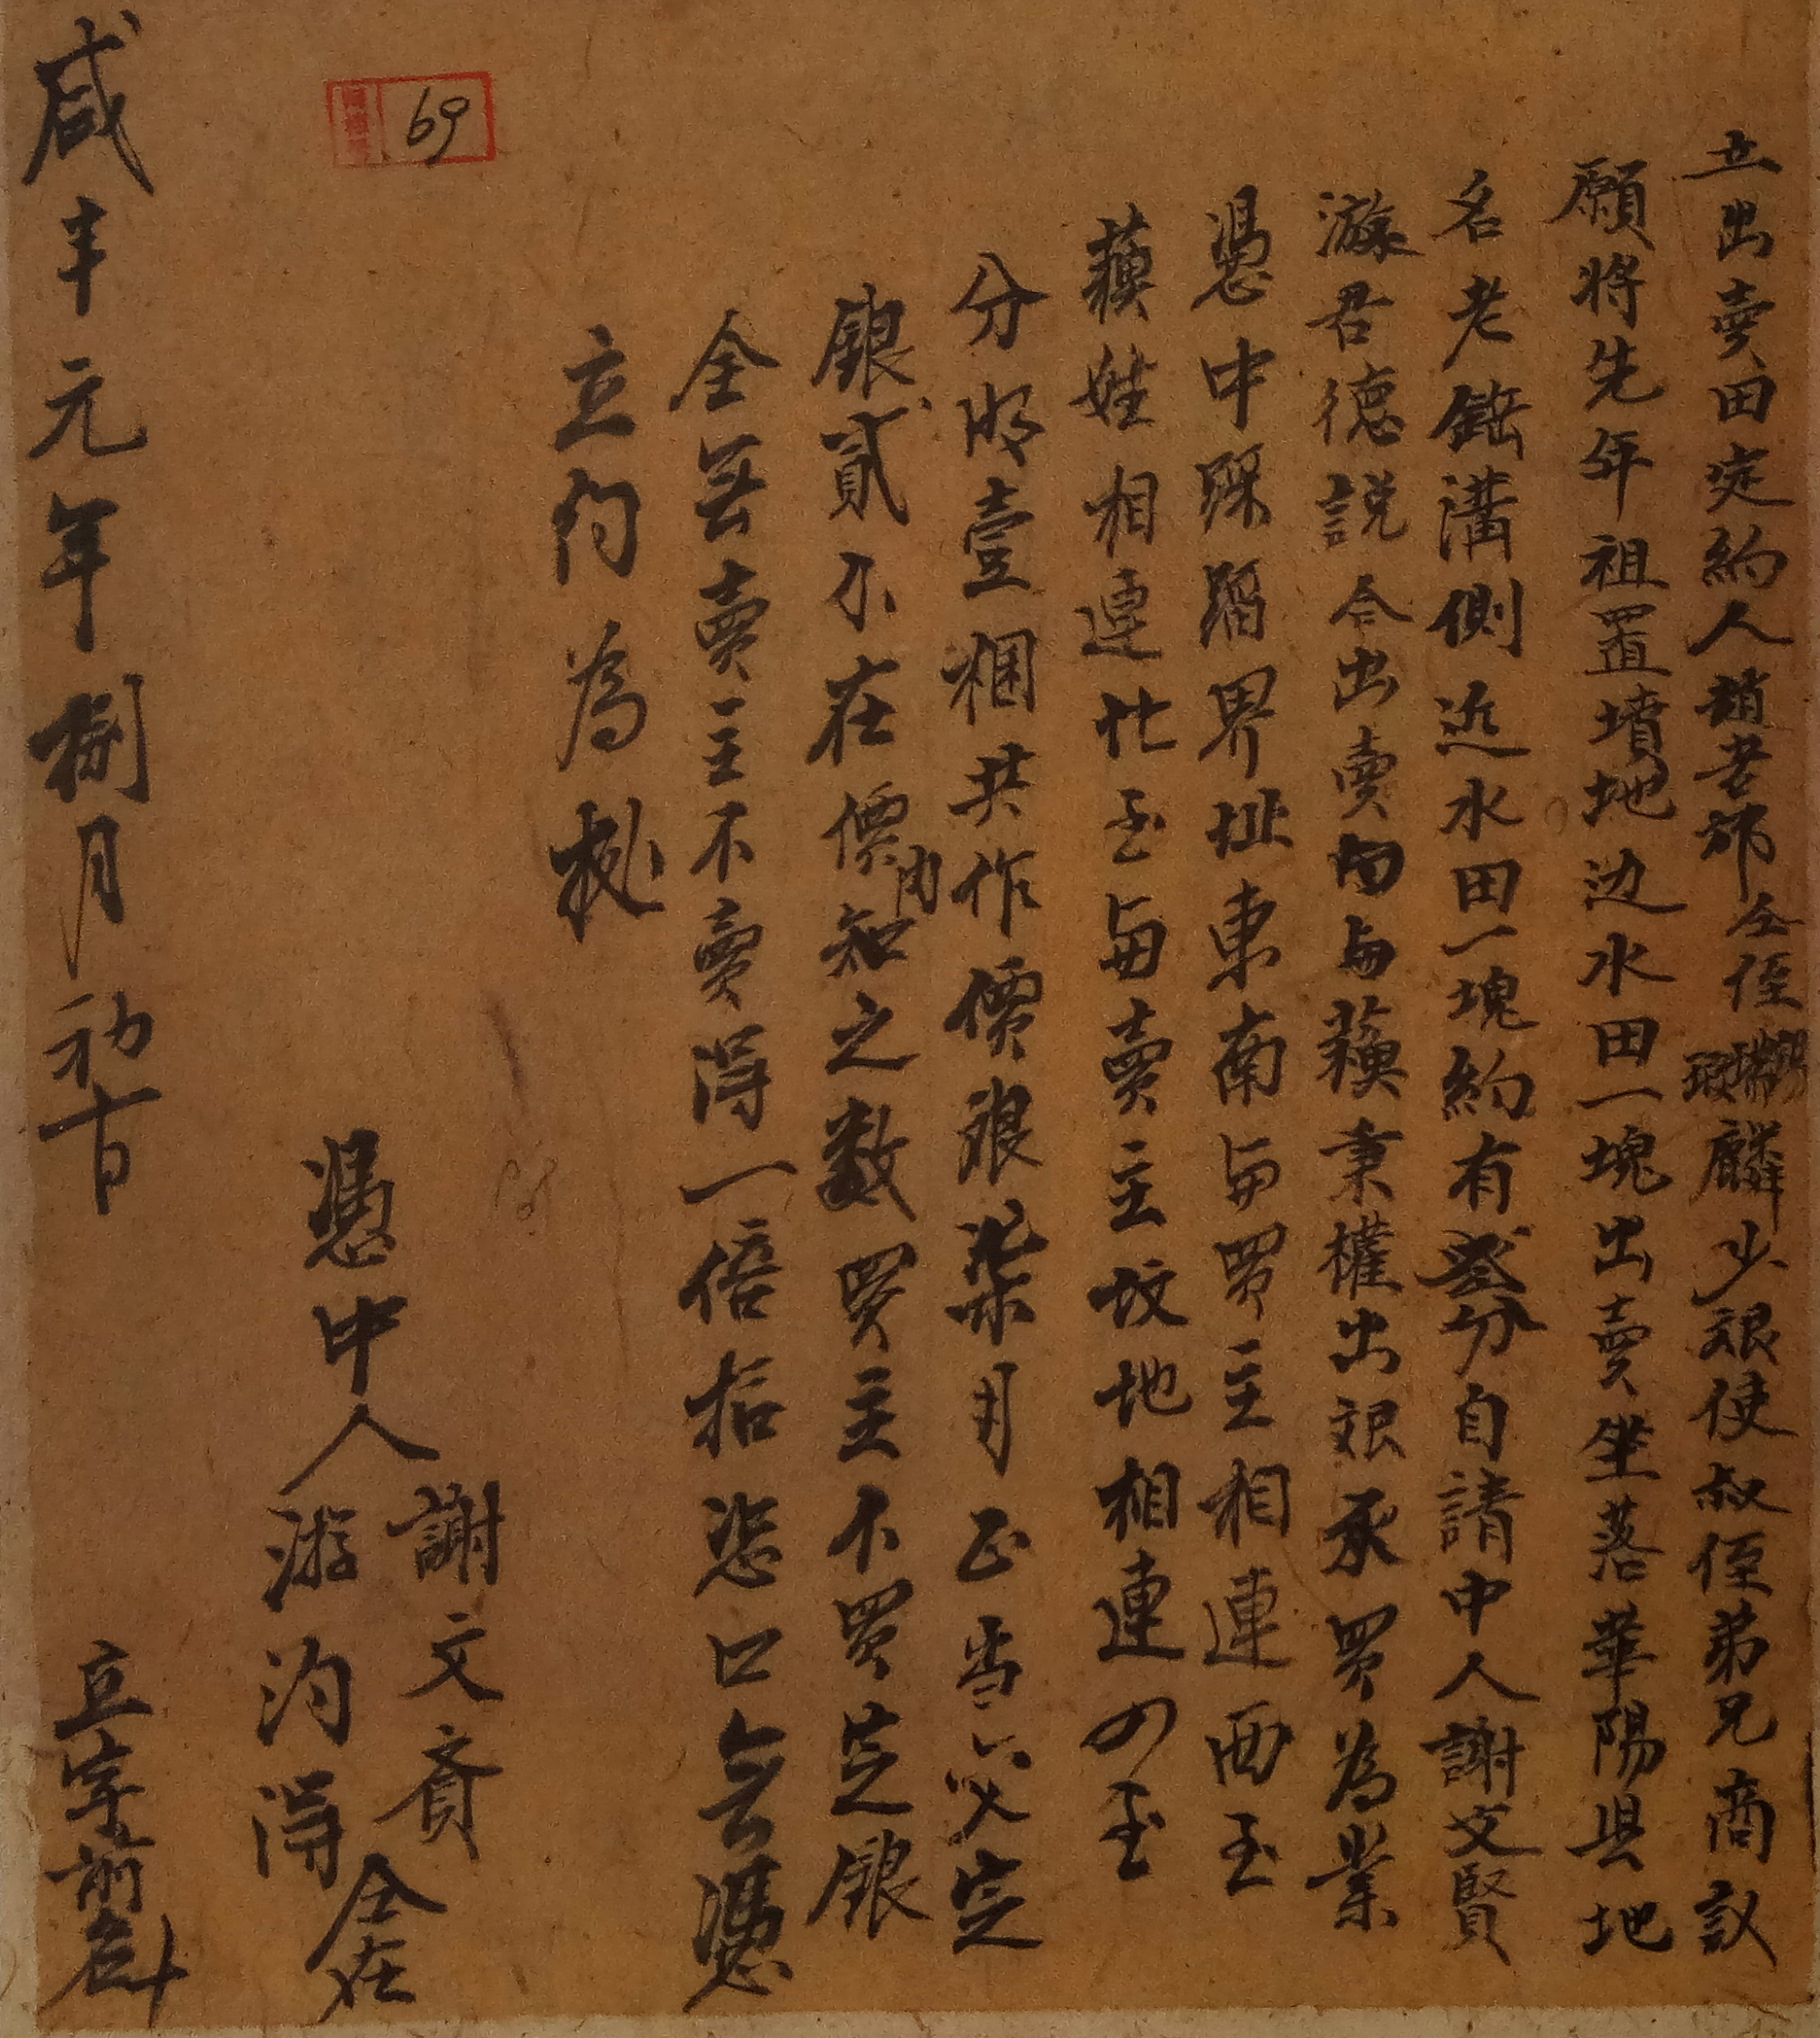 立出賣田定約人趙老郊仝侄錫瑞瓊麟少艮使叔侄弟兄商議
願將先年祖置墳地边水田一塊出賣坐落華陽县地
名老鋸溝側近水田一塊約有叁分自請中人謝文賢
游君德説合出賣与蘓秉權出艮承買為業
憑中踩踏界址東南与買主相連西至
蘓姓相連北至与賣主坟地相連四至
分明壹捆共作價艮柒月正当交定
銀貳个在價內知之数買主不買定銀
全無賣主不賣得一倍拾恣口無憑
立約為拠
憑中人
謝文齋
游沟得
仝在
69
咸丰元年捌月初十日
立字前名